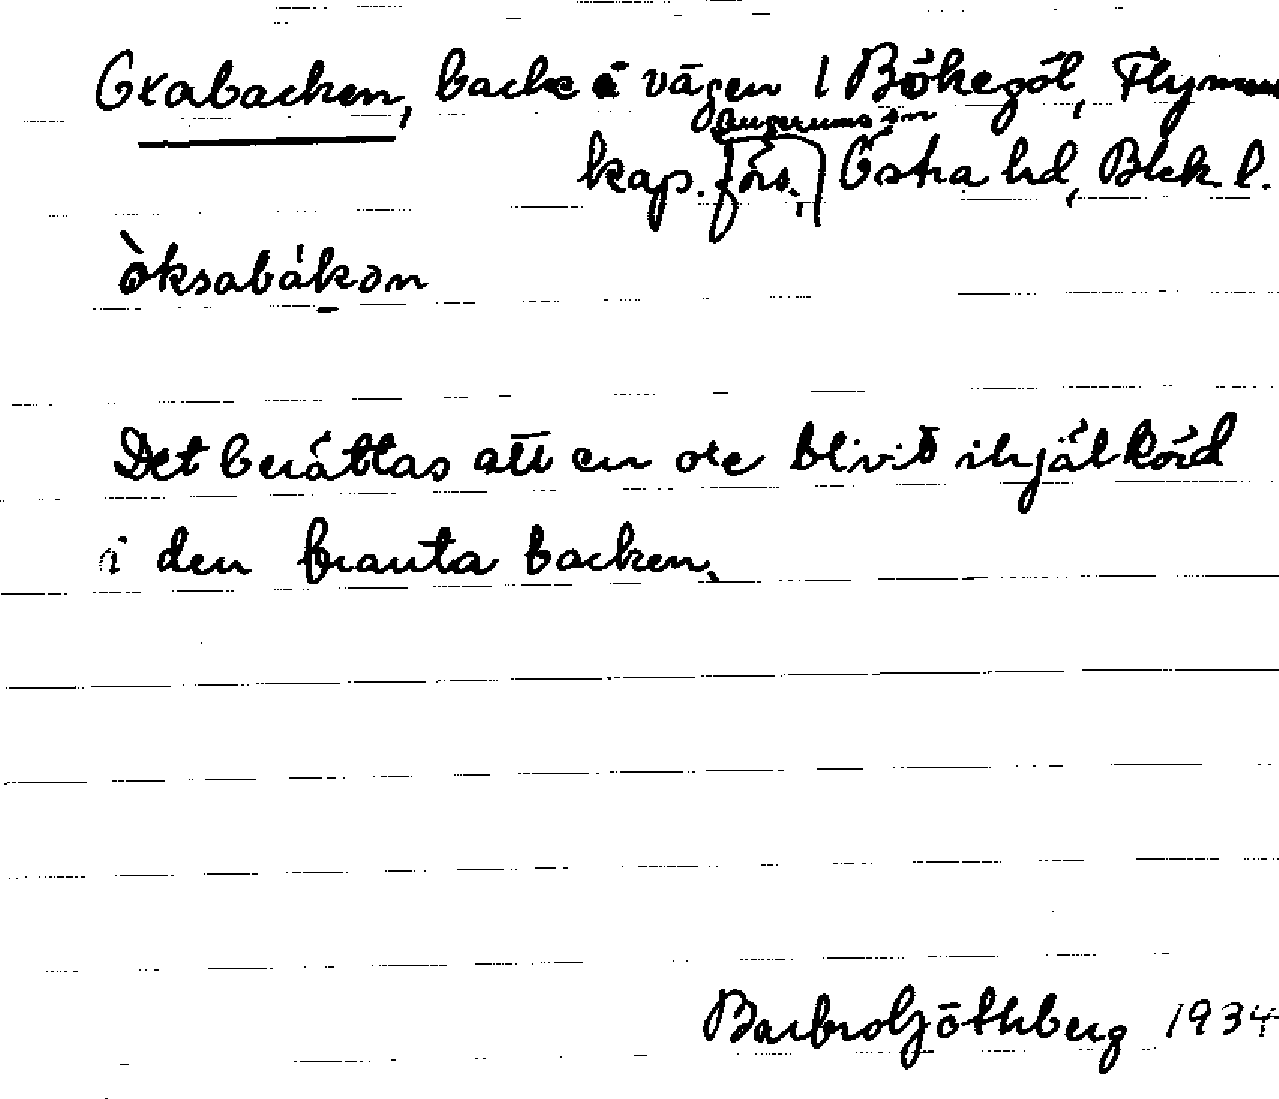 Oxabacken, backe å vägen i Bökegöl, Flymens
Augerums sn
kap. förs. Östra hd, Blek. l.
òksabákən
Det berättas att en oxe blivit ihjälkörd
i den branta backen.
Barbro Göthberg 1934